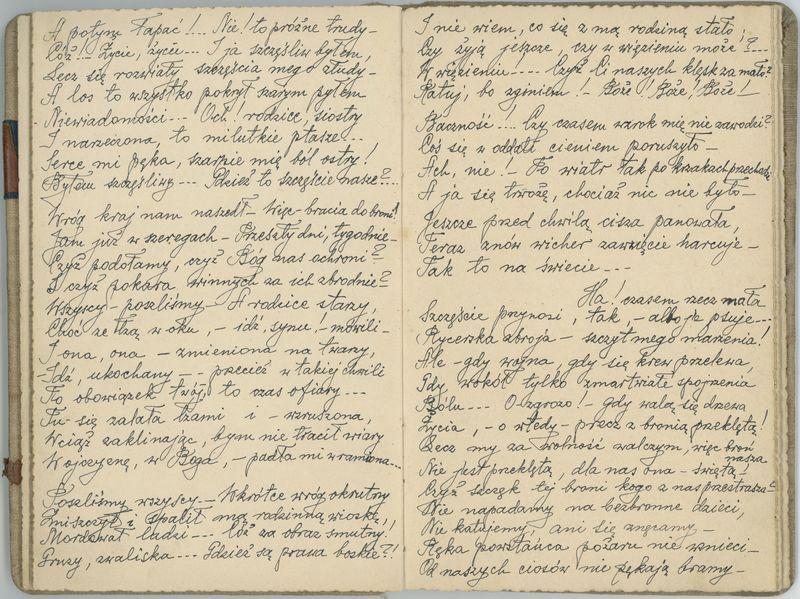 A potym łapać!... Nie! to próżne trudy –
Cóż!... Życie, życie --- I ja szczęśliw byłem,
Lecz się rozwiały szczęścia mego złudy –
A los to wszystko pokrył szarym pyłem
Niewiadomości --- Och! rodzice, siostry
I narzeczona, to milutkie ptaszę ---
Serce mi pęka, szarpie mię ból ostry!
Byłem szczęśliwy --- Gdzież to szczęście nasze?...
Wróg kraj nam naszedł – Więc – bracia do broni!
Jam już w szeregach – Przeszły dni, tygodnie –
Czyż podołamy, czyż Bóg nas ochroni?
I czyż pokara winnych za ich zbrodnie?
Wszyscy – poszliśmy – A rodzice starzy,
Choć ze łzą w oku, – idź, synu, – mówili –
I ona, ona – zmieniona na twarzy,
– Idź, ukochany – – przecież w takiej chwili
To obowiązek twój, to czas ofiary ---
Tu – się zalała łzami i – wzruszona,
Wciąż zaklinając, bym nie tracił wiary
W ojczyznę, w Boga, – padła mi w ramiona...
Poszliśmy wszyscy --- Wkrótce wróg okrutny
Zniszczył i spalił mą rodzinną wioskę,
Mordował ludzi --- Cóż za obraz smutny!
Gruzy, zwaliska --- Gdzież są prawa boskie?!
I nie wiem, co się z mą rodziną stało;
Czy żyją jeszcze, czy w więzieniu może?---
W więzieniu ---- Czyż Ci naszych klęsk za mało?
Ratuj, bo zginiem! – Boże! Boże! Boże!
Baczność!... Czy czasem wzrok mię nie zawodzi?
Coś się w oddali cieniem poruszyło –
Ach, nie! – To wiatr tak po krzakach przechodzi
A ja się trwożę, chociaż nic nie było –
Jeszcze przed chwilą cisza panowała,
Teraz znów wicher zawzięcie harcuje –
Tak to na świecie ---
Ha! czasem rzecz mała
Szczęście przynosi, tak, – albo je psuje ---
Rycerska zbroja – szczyt mego marzenia!
Ale – gdy wojna, gdy się krew przelewa,
Gdy wokół tylko zmartwiałe spojrzenia
Bólu --- O zgrozo! – gdy walą się drzewa
Życia, – o wtedy – precz z bronią przeklętą!
Lecz my za wolność walczym, więc broń nasza
Nie jest przeklętą, dla nas ona – świętą!
Czyż szczęk tej broni kogo z nas przestrasza?
Nie napadamy na bezbronne dzieci,
Nie katujemy ani się znęcamy –
Ręka powstańca pożaru nie wznieci –
Od naszych ciosów nie pękają bramy –